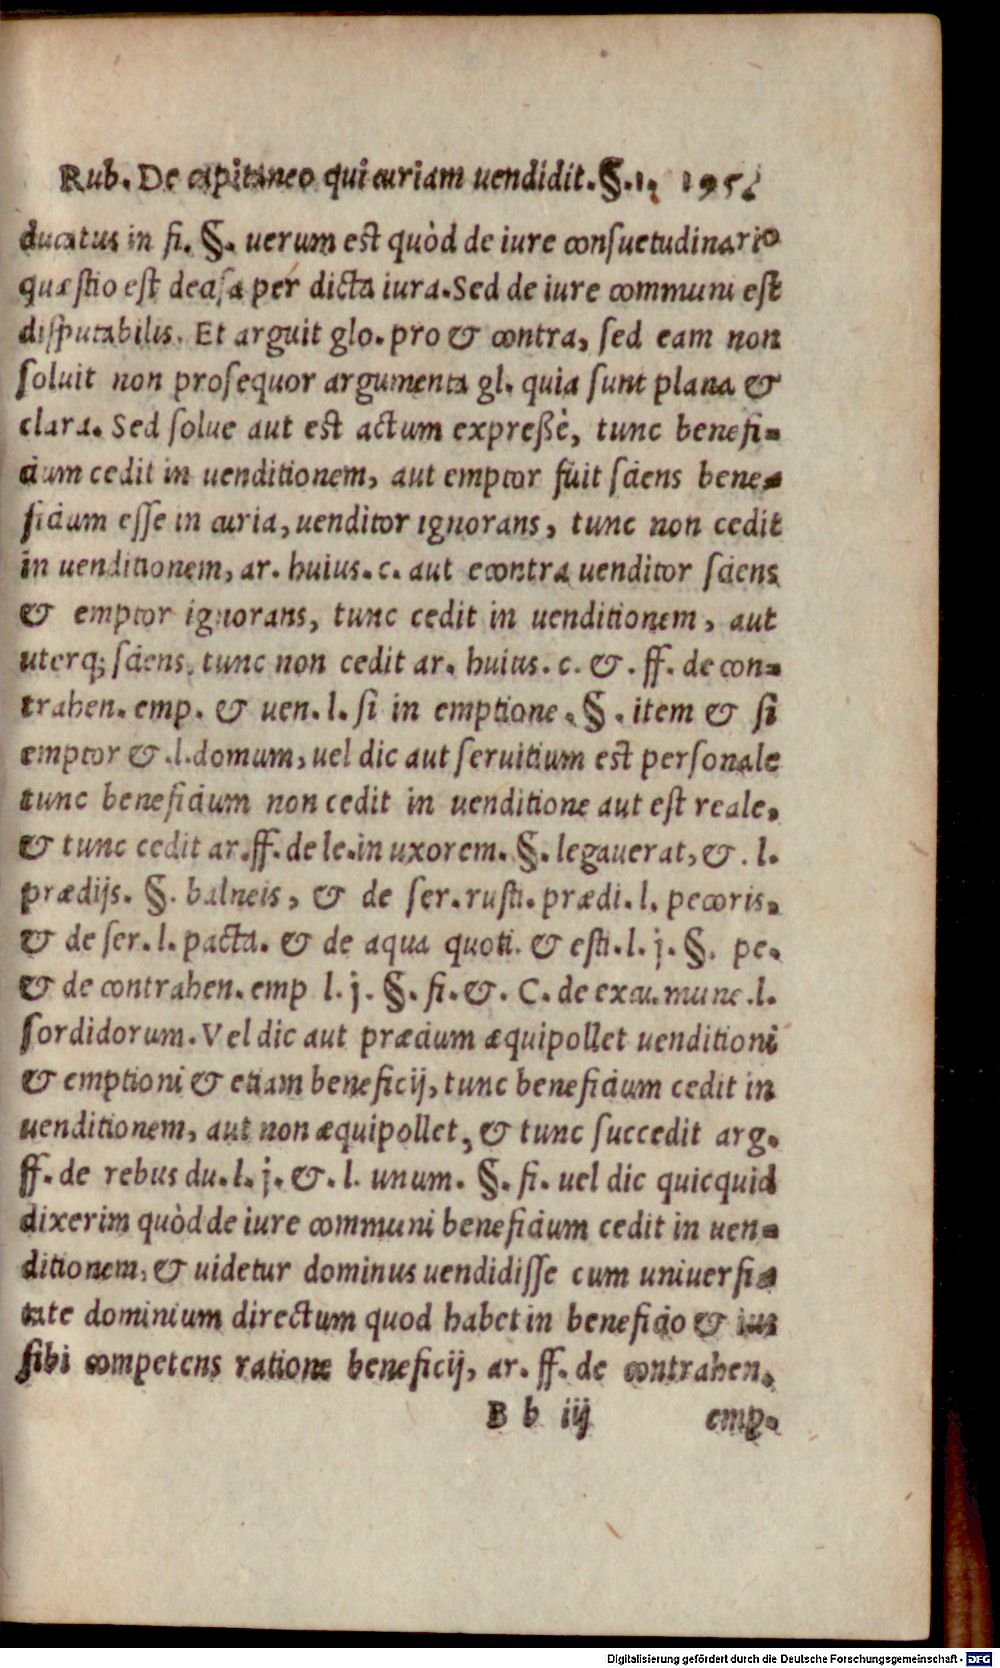 Rub. De capitaneo qui curiam uendidit. §. 1. 195
ducatus in fi. §. uerum est quòd de iure consuetudinario
quæstio est decisa per dicta iura. Sed de iure communi est
disputabilis. Et arguit glo. pro & contra, sed eam non
soluit non prosequor argumenta gl. quia sunt plana &
clara. Sed solue aut est actum expreßè, tunc benefi-
cium cedit in uenditionem, aut emptor fuit sciens bene-
ficium esse in curia, uenditor ignorans, tunc non cedit
in uenditionem, ar. huius. c. aut econtra uenditor sciens
& emptor ignorans, tunc cedit in uenditionem, aut
uterq; sciens, tunc non cedit ar. huius. c. &. ff. de con-
trahen. emp. & uen. l. si in emptione. §. item & si
emptor &. l. domum, uel dic aut seruitium est personale
tunc beneficium non cedit in uenditione aut est reale,
& tunc cedit ar. ff. de le. in uxorem. §. legauerat, &. l.
prædijs. §. balneis, & de ser. rusti. prædi. l. pecoris,
& de ser. l. pacta. & de aqua quoti. & esti. l. j. §. pe.
& de contrahen. emp l. j. §. fi. &. C. de excu. mune. l.
sordidorum. Vel dic aut præcium æquipollet uenditioni
& emptioni & etiam beneficij, tunc beneficium cedit in
uenditionem, aut non æquipollet, & tunc succedit arg.
ff. de rebus du. l. j. &. l. unum. §. fi. uel dic quicquid
dixerim quòd de iure communi beneficium cedit in uen-
ditionem, & uidetur dominus uendidisse cum uniuersi-
tate dominium directum quod habet in beneficio & ius
sibi competens ratione beneficij, ar. ff. de contrahen.
B b iij emp.
Digitalisierung gefördert durch die Deutsche Forschungsgemeinschaft - DFG